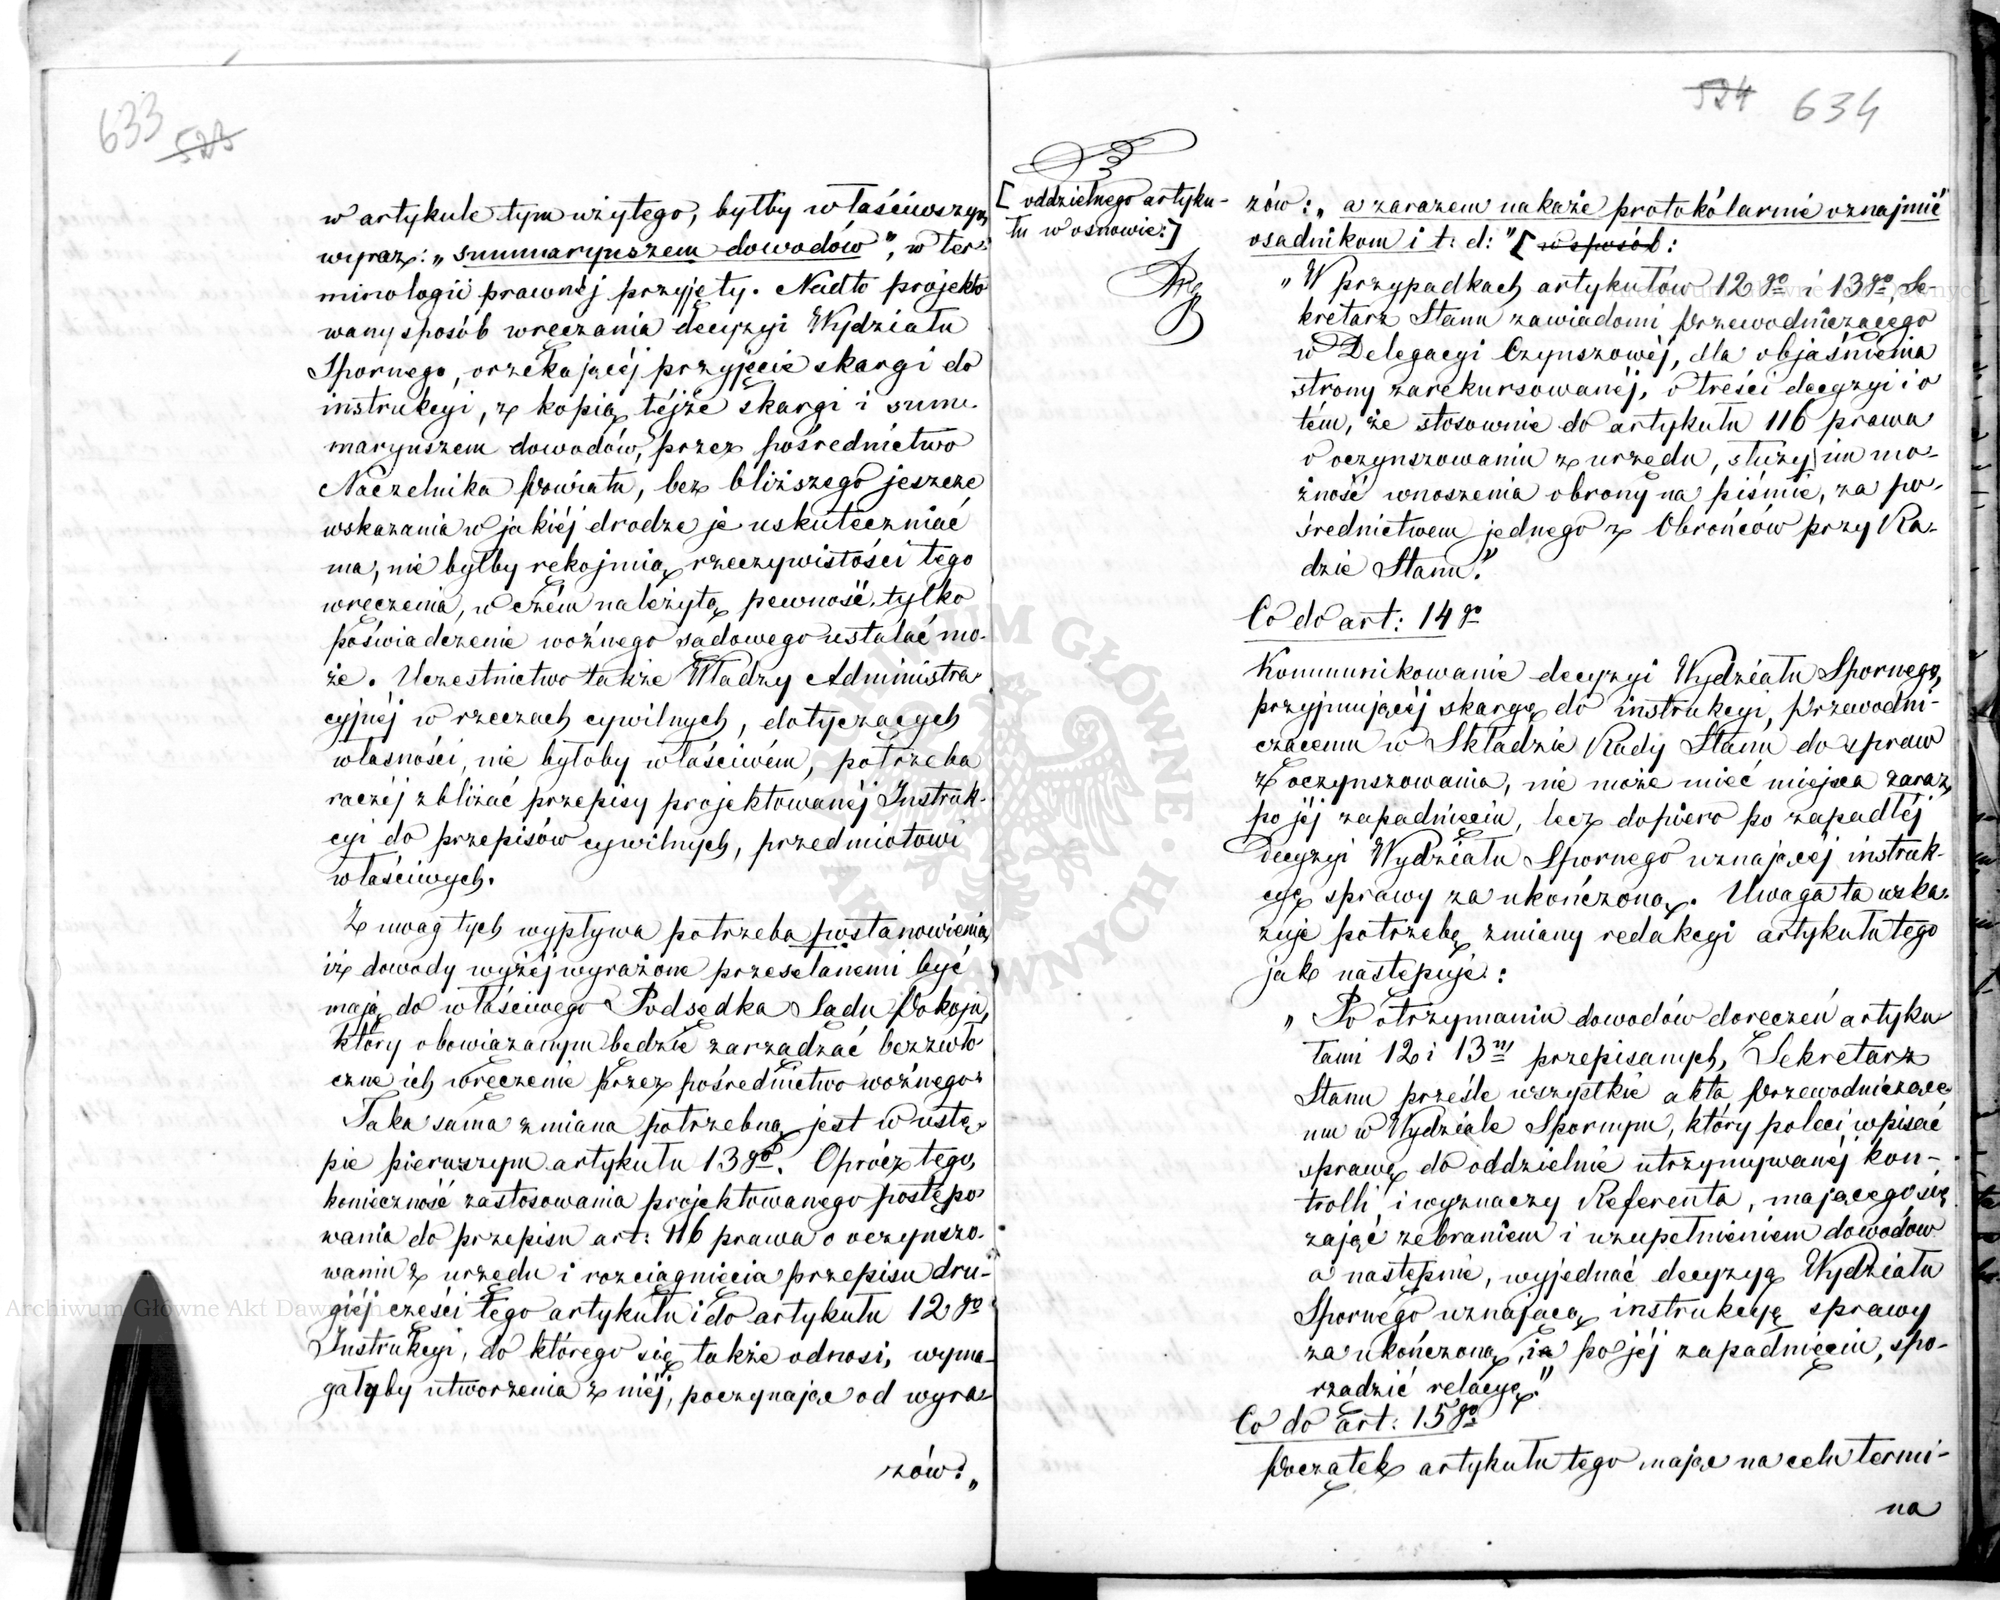 633 523
w artykule tym użytego, byłby właściwszym
wyraz: „summaryuszem dowodów", w ter-
minologii prawnéj przyjęty. Nadto projekto
wany sposób wręczania decyzyi Wydziału
Spornego, orzekającéj przyjęcie skargi do
instrukcyi, z kopią téjże skargi i sum-
maryuszem dowodów, przez pośrednictwo
Naczelnika Powiatu, bez bliższego jeszcze
wskazania w jakiéj drodze je uskuteczniać
ma, nie byłby rękojmią rzeczywistości tego
wręczenia, w czém należytą pewność tylko
poświadczenie woźnego sądowego ustalać mo-
że. Uczestnictwo także Władzy Administra-
cyjnéj w rzeczach cywilnych, dotyczących
własności, nie byłoby właściwém, potrzeba
raczéj zbliżać przepisy projektowanéj Instruk-
cyi do przepisów cywilnych, przedmiotowi
właściwych.
Z uwag tych wypływa potrzeba postanowienia,
iż dowody wyżéj wyrażone przesełanemi być
mają do właściwego Podsędka Sądu Pokoju,
który obowiązanym będzie zarządzać bezzwło
czne ich wręczenie przez pośrednictwo woźnego.
Taka sama zmiana potrzebną jest w ustę-
pie pierwszym artykułu 13go. Oprócz tego,
konieczność zastosowania projektowanego postępo
wania do przepisu art: 116 prawa o oczynszo-
waniu z urzędu i rozciągnięcia przepisu dru-
giéj części tego artykułu i do artykułu 12go
Instrukcyi, do którego się także odnosi, wyma-
gałyby utworzenia z niéj, poczynając od wyra-
zów: „
524 634
[oddzielnego artyku-
łu w osnowie:]
zów: „a zarazem nakaże protokólarnie oznajmić
osadnikom i t: d:" [w sposób:
„W przypadkach artykułów 12go i 13go, Se-
kretarz Stanu zawiadomi Przewodniczącego
w Delegacyi Czynszowéj, dla objaśnienia
strony zarekursowanéj, o treści decyzyi i o
tém, że stosownie do artykułu 116 prawa
o oczynszowaniu z urzędu, służy im mo-
żność wnoszenia obrony na piśmie, za po-
średnictwem jednego z Obrońców przy Ra-
dzie Stanu."
Co do art: 14go
Kommunikowanie decyzyi Wydziału Spornego,
przyjmującéj skargę do instrukcyi, Przewodni-
czącemu w Składzie Rady Stanu do spraw
z oczynszowania, nie może mieć miejsca zaraz
po jéj zapadnięciu, lecz dopiero po zapadłéj
decyzyi Wydziału Spornego uznającéj instruk-
cyę sprawy za ukończoną. Uwaga ta wska-
zuje potrzebę zmiany redakcyi artykułu tego
jak następuje:
„Po otrzymaniu dowodów doręczeń artyku
łami 12 i 13m przepisanych, Sekretarz
Stanu prześle wszystkie akta Przewodniczące
mu w Wydziale Spornym, który poleci wpisać
sprawę do oddzielnie utrzymywanéj kon-
trolli i wyznaczy Referenta, mającego się
zająć zebraniem i uzupełnieniem dowodów
a następnie, wyjednać decyzyą Wydziału
Spornego uznającą instrukcyę sprawy
za ukończoną, i po jéj zapadnięciu, spo-
rządzić relacyę."
Co do art: 15go
Początek artykułu tego mając na celu termi-
na
Archiwum Główne Akt Dawnych
ARCHIWUM GŁÓWNE AKT DAWNYCH